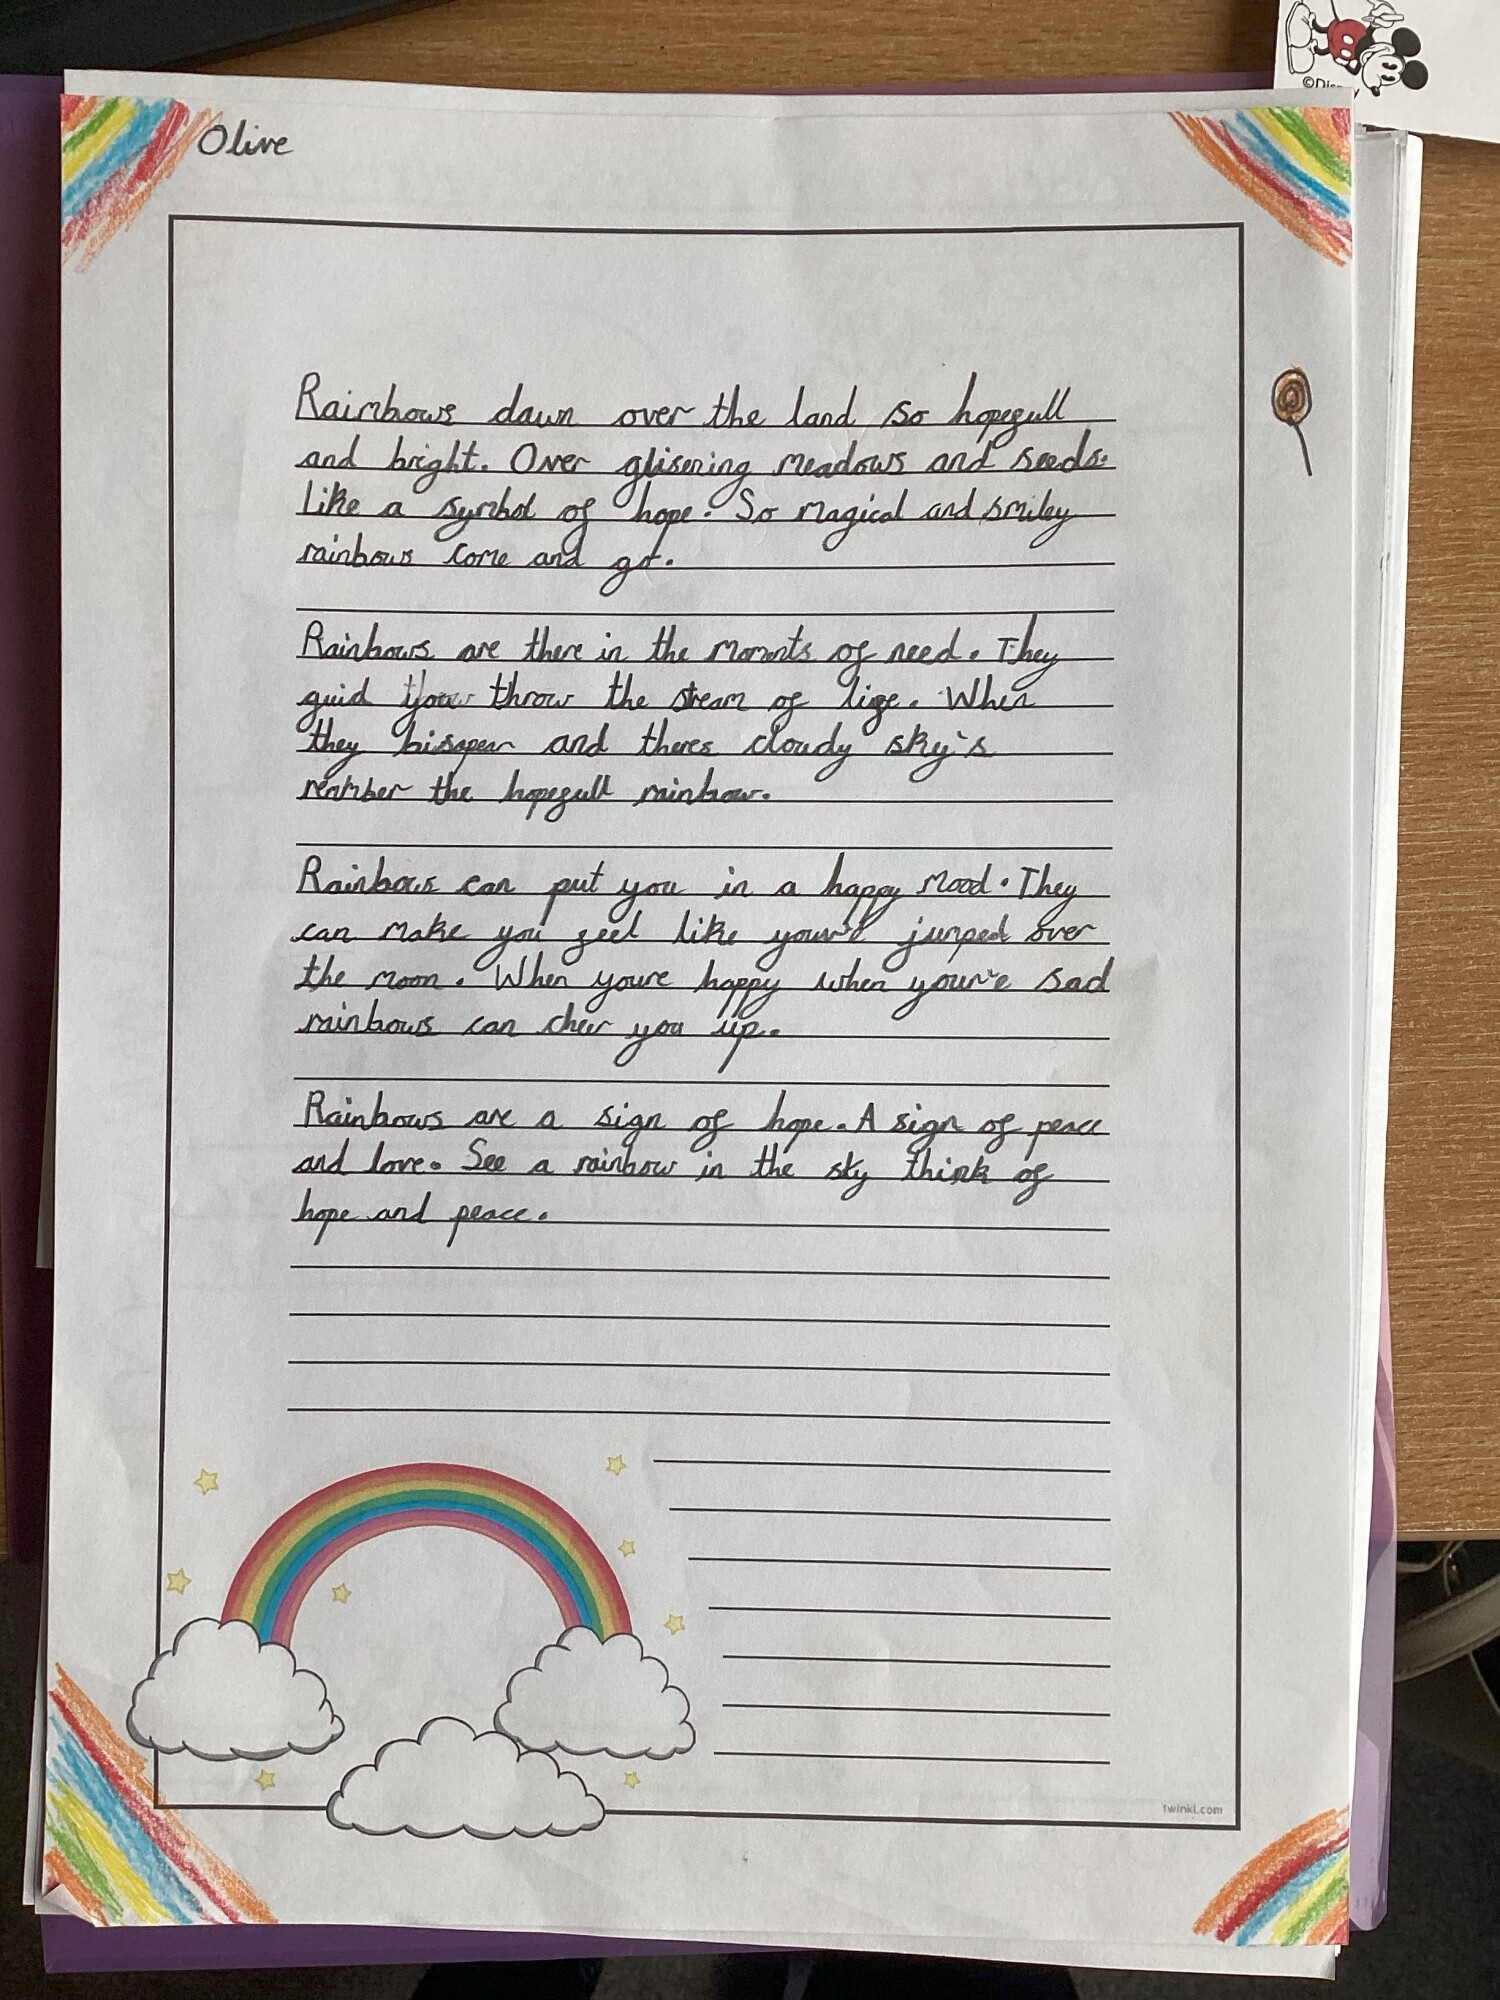 ©Disney
Olive
Rainbows dawn over the land so hopefull
and bright. Over glisering meadows and seeds.
like a symbol of hope. So magical and smiley
rainbows come and go.
Rainbows are there in the moments of need. They
guid throw the stream of life. When
they bisapear and theres cloudy sky's
rember the hopefull rainbow.
Rainbows can put you in a happy mood. They
can make you feel like jumped over
the moon. When youre happy when sad
rainbows can cheer you up.
Rainbows are a sign of hope. A sign of peace
and love. See a rainbow in the sky think of
hope and peace.
twinkl.com